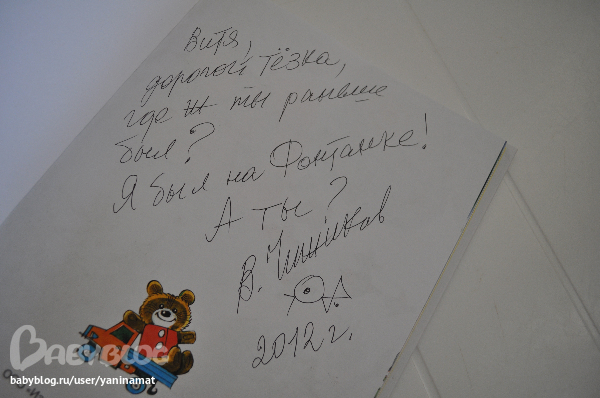 Витя,
дорогой тёзка,
где ж ты раньше
был?
Я был на Фонтанке!
А ты?
В. Чижиков
2012 г.
BABYBLOG
babyblog.ru/user/yaninamat